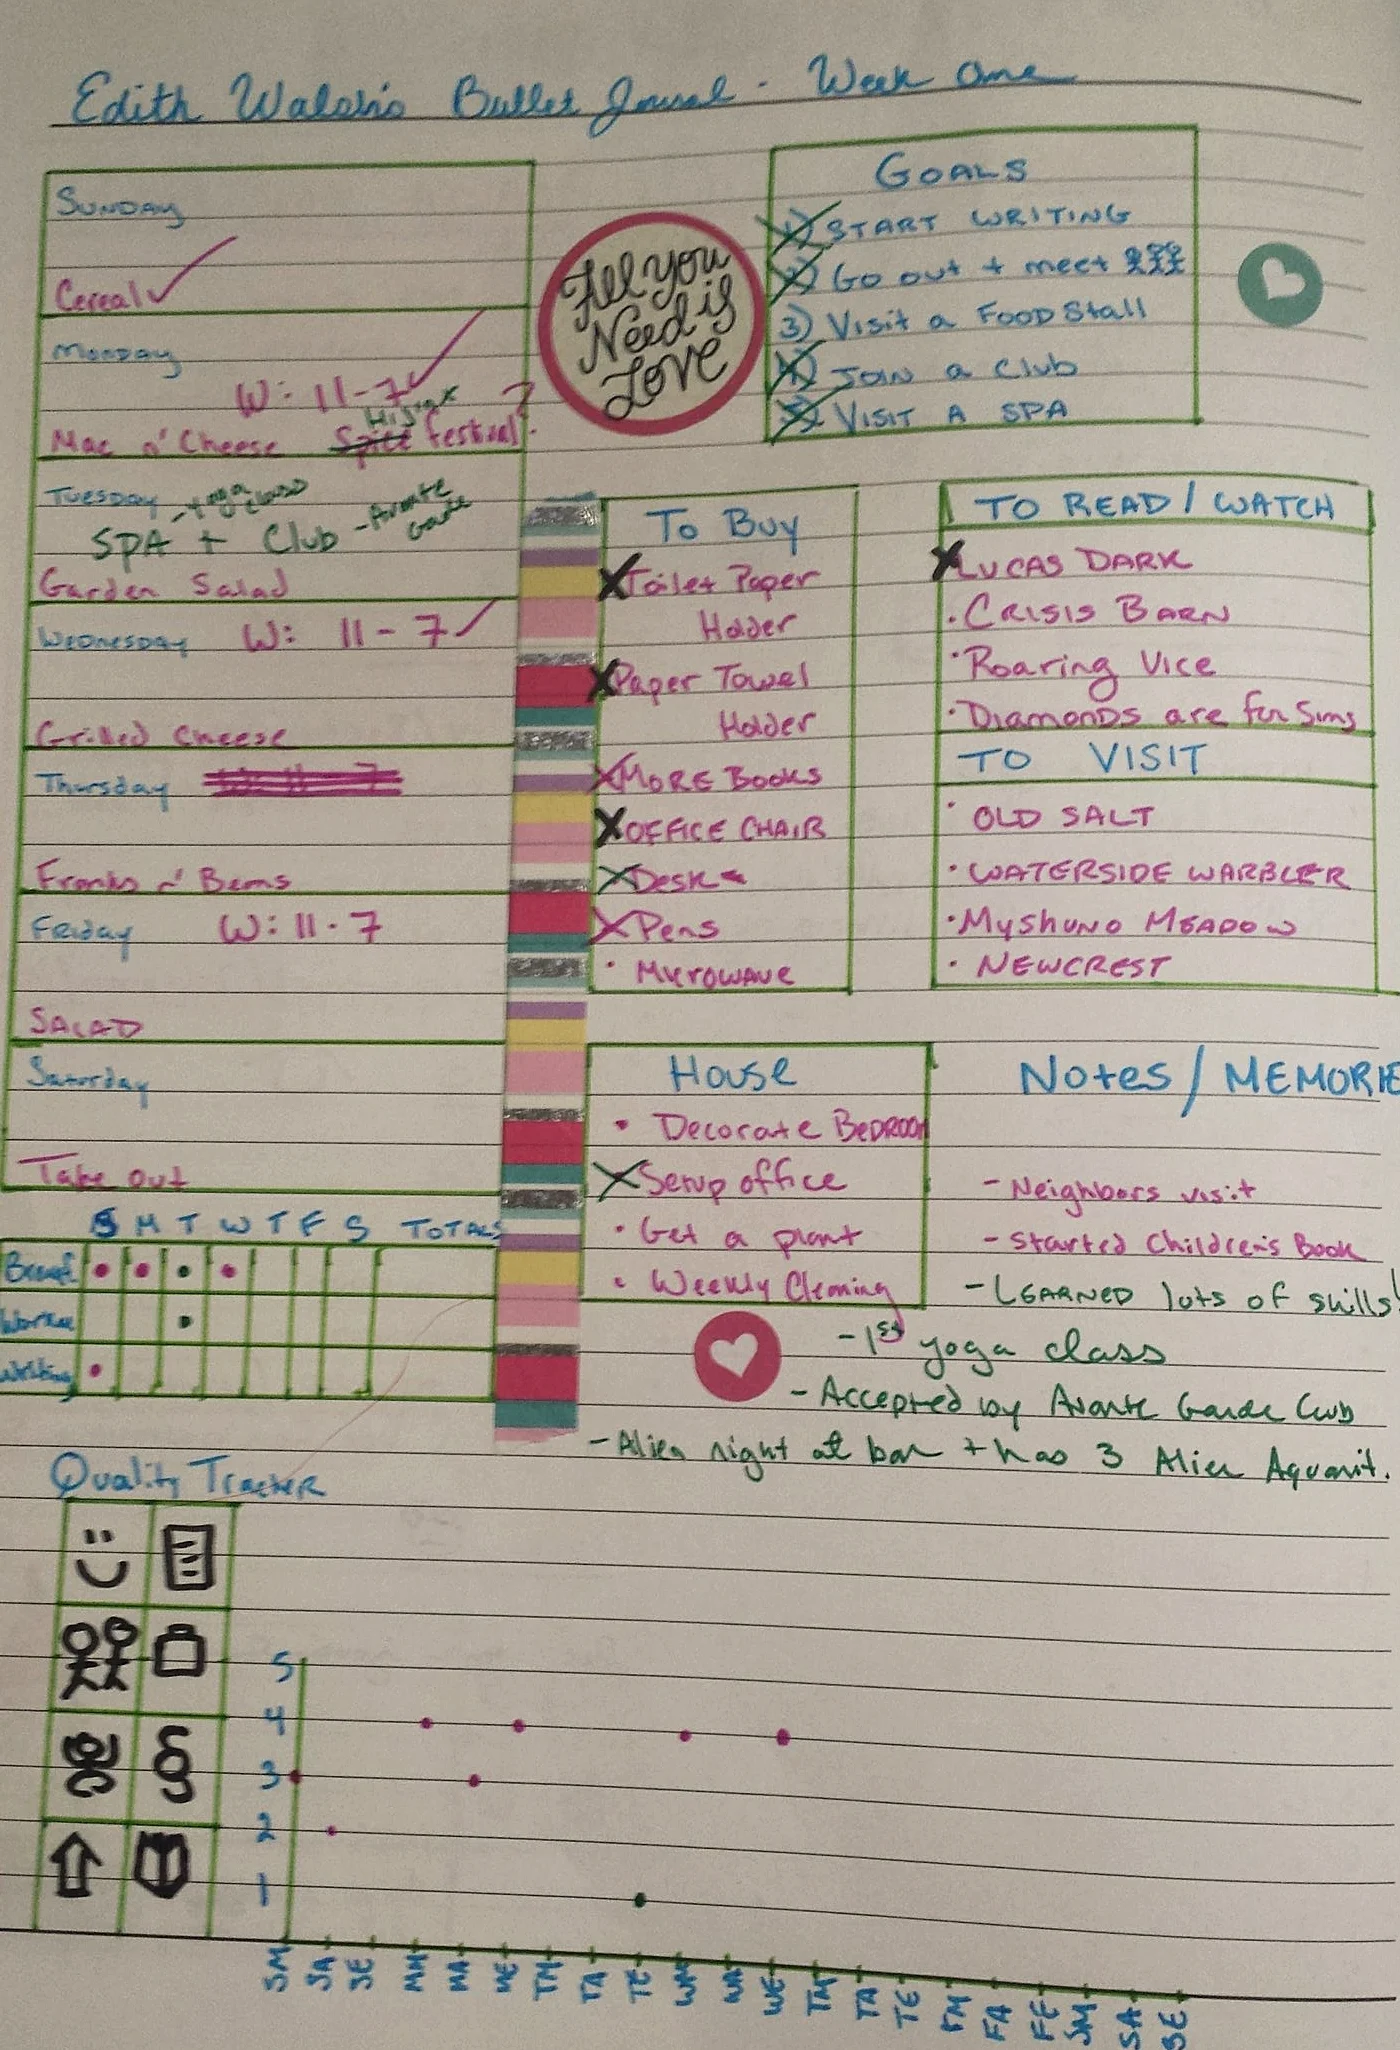 Edith Walsh's Bullet Journal - Week One
SUNDAY
Cereal
Monday
W: 11-7
Hijinx
Mac n' Cheese Spice festival?
Tuesday - yoga class
SPA + Club - Avante Garde
Garden Salad
Wednesday W: 11-7
Grilled Cheese
Thursday
Franks n' Beans
Friday W: 11-7
SALAD
Saturday
Take out
All you
Need is
Love
GOALS
1) START WRITING
2) Go out + meet
3) Visit a Food Stall
4) JOIN a Club
5) VISIT A SPA
To Buy
Toilet Paper
Holder
Paper Towel
Holder
MORE Books
OFFICE CHAIR
Desk
Pens
• Microwave
TO READ / WATCH
LUCAS DARK
• CRISIS BARN
• Roaring Vice
• Diamonds are for Sims
TO VISIT
• OLD SALT
• WATERSIDE WARBLER
• Myshuno Meadow
• NEWCREST
House
• Decorate Bedroom
Setup office
• Get a plant
• Weekly Cleaning
Notes / MEMORIE
- Neighbors visit
- Started Children's Book
- LEARNED lots of skills!
- 1st yoga class
- Accepted by Avante Garde Club
- Alien night at bar + has 3 Alien Aquanit.
S M T W T F S TOTALS
Writing
Quality Tracker
5
4
3
2
1
SM SA SE MM MA ME TM TA TE WM WA WE TM TA TE FM FA FE SM SA SE